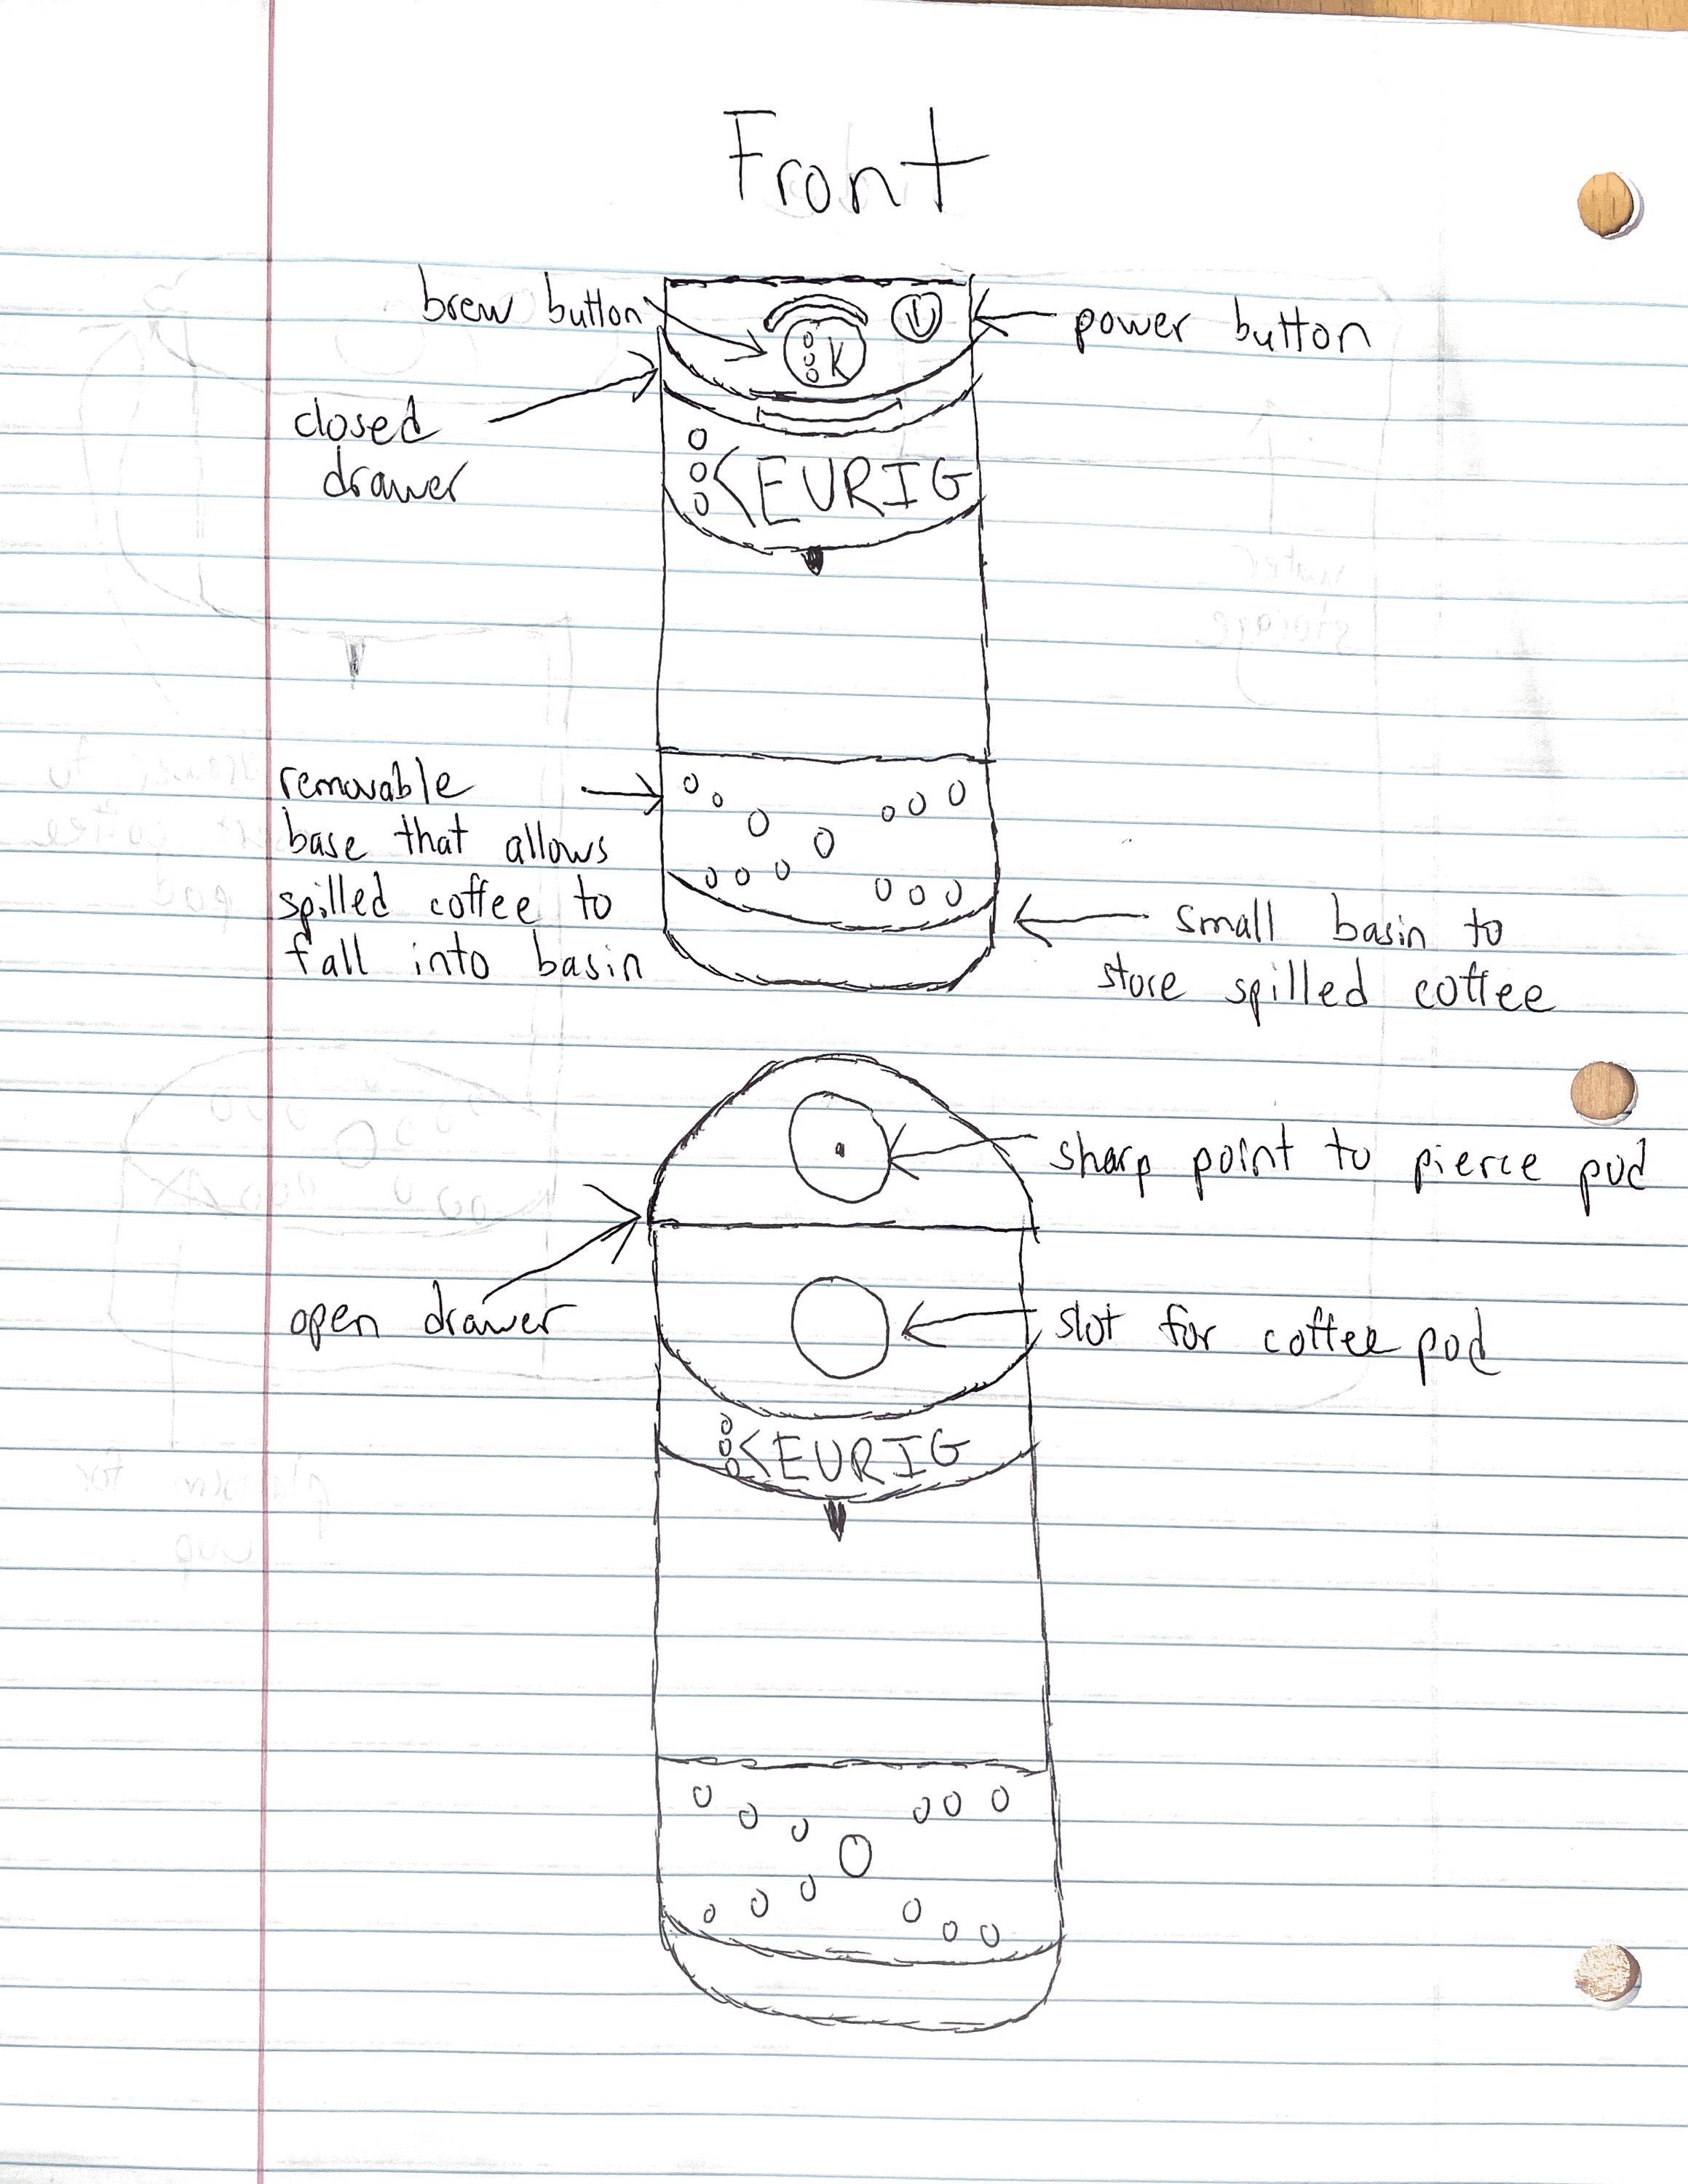 Front
brew button
power button
K
closed
drawer
KEURIG
removable
base that allows
spilled coffee to
fall into basin
small basin to
store spilled coffee
sharp point to pierce pod
open drawer
slot for coffee pod
KEURIG